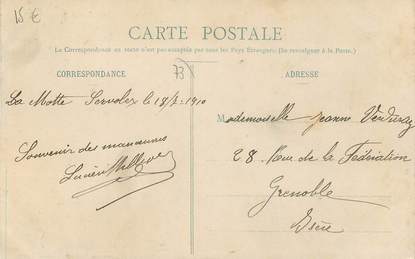 15 €
CARTE POSTALE
La Correspondance au recto n'est pas acceptée par tous les Pays Etrangers. (Se renseigner à la Poste.)
CORRESPONDANCE
73
ADRESSE
La Motte Servolex le 18/7-1910
Souvenir des manœuvres
Lucien
Mademoiselle Jeanne
28 Rue de la Fédération
Grenoble
Isère